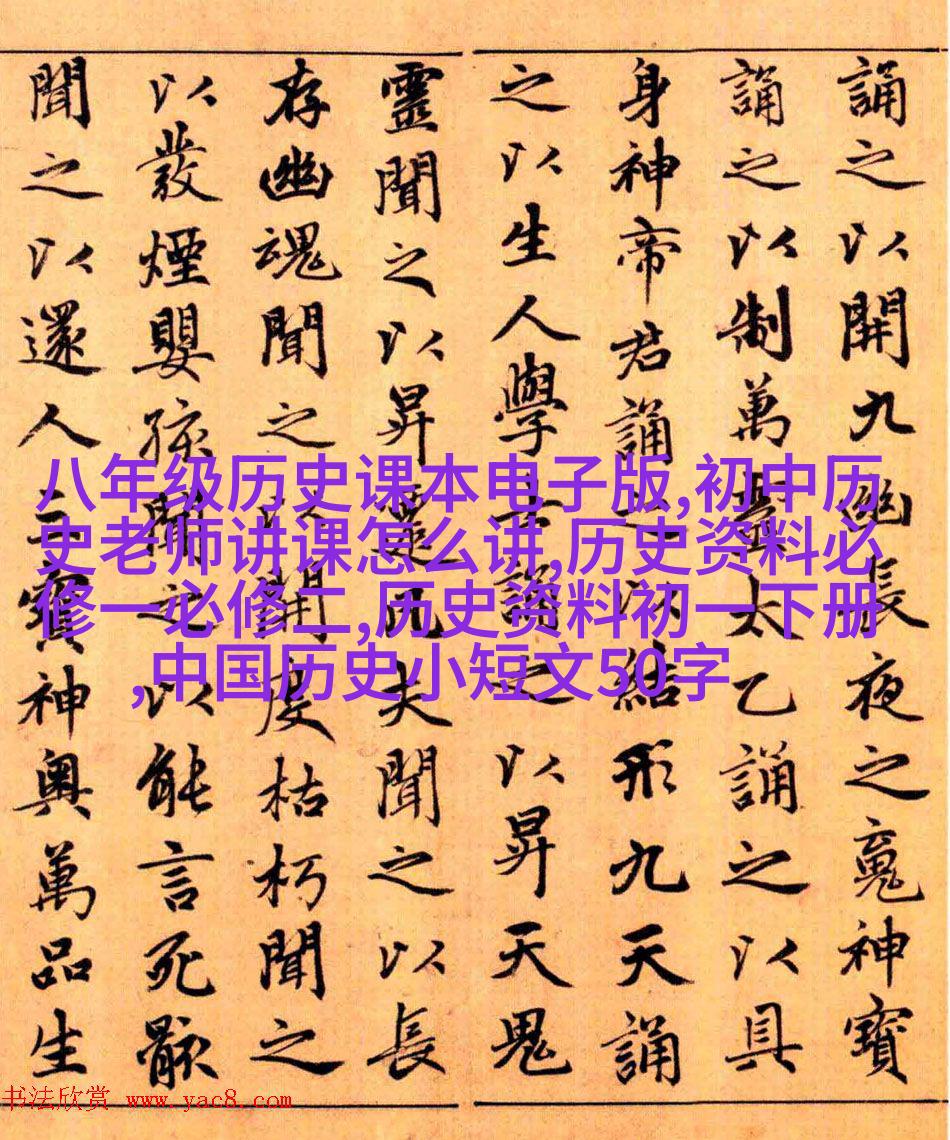 誦之以開九幽長夜之䰟神寶
誦之以制萬靈太乙誦之以具
身神帝君誦之以結形九天誦
之以生人學士誦之以昇天鬼
靈聞之以昇遷凡夫聞之以長
存幽魂聞之以開度枯朽聞之
以發煙嬰孩聞之以能言死骸
聞之以還人三寶神奧萬品生
八年级历史课本电子版,初中历
史老师讲课怎么讲,历史资料必
修一必修二,历史资料初一下册
,中国历史小短文50字
书法欣赏 www.yac8.com